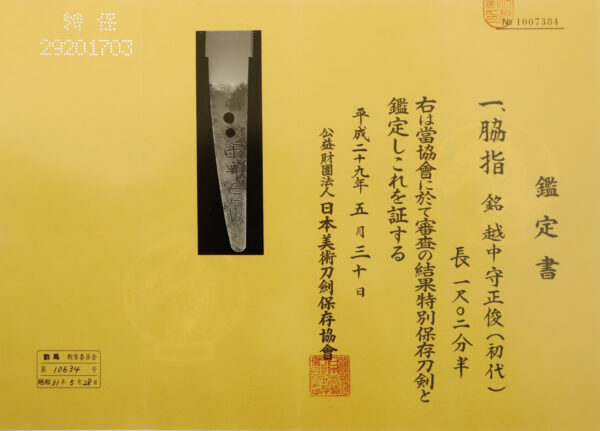 № 1007384
鑑定書
一、脇指 銘 越中守正俊(初代)
長 一尺〇二分半
右は當協會に於て審査の結果特別保存刀剣と
鑑定しこれを証する
平成二十九年 五月三十日
公益財團法人 日本美術刀劍保存協會
特保
29201703
群馬 教育委員会
第 10634 号
昭和31年5月28日